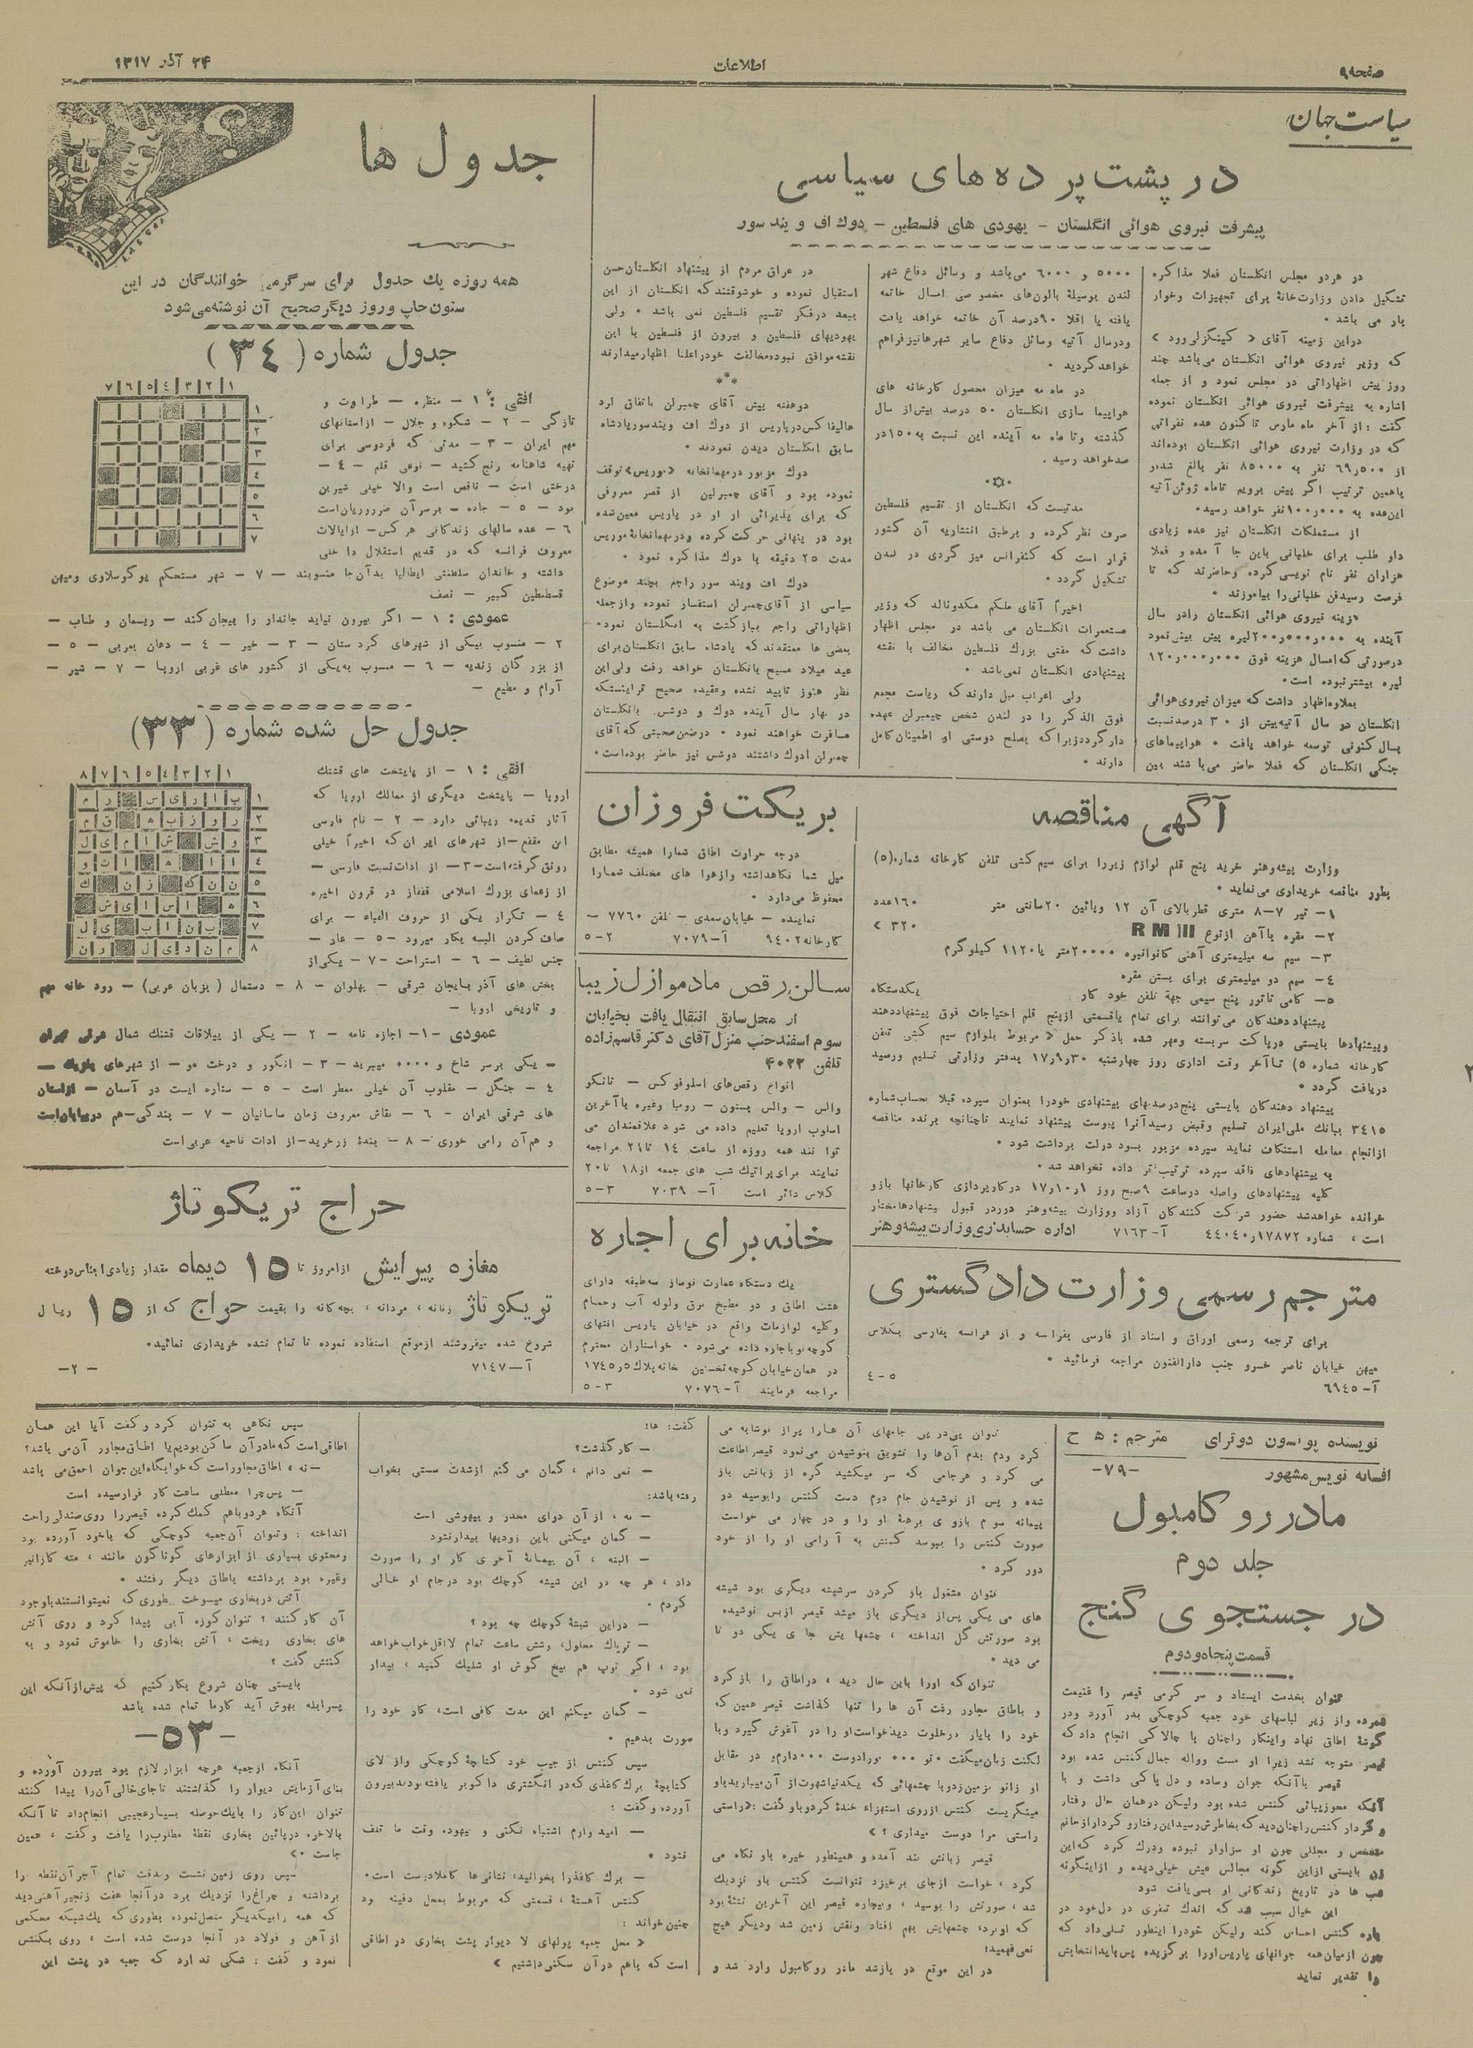 صفحه ۹۹
اطلاعات
۲۴ آذر ۱۳۱۷
سیاست جهان
در پشت پرده های سیاسی
پیشرفت نیروی هوائی انگلستان - یهودی های فلسطین - دوك اف ویند سور
در هردو مجلس انگلستان فعلا مذاکره
تشکیل دادن وزارت‌خانهٔ برای تجهیزات وخوار
بار می باشد .
دراین زمینه آقای « کینگزلی وود »
که وزیر نیروی هوائی انگلستان می‌باشد چند
روز پیش اظهاراتی در مجلس نمود و از جمله
اشاره به پیشرفت نیروی هوائی انگلستان نموده
گفت : از آخر ماه مارس تاکنون عده نفراتی
که در وزارت نیروی هوائی انگلستان بوده‌اند
از ۶۹ر۵۰۰ نفر به ۸۵۰۰۰ نفر بالغ شده‌و
باهمین ترتیب اگر پیش برویم تاماه ژوئن آتیه
این‌عده به ۱۰۰ر۰۰۰ نفر خواهد رسید.
از مستملکات انگلستان نیز عده زیادی
داو طلب برای خلبانی باین جا آمده و فعلا
هزاران نفر نام نویسی کرده وحاضرند که تا
فرصت رسیدفن خلبانی را بیاموزند .
هزینه نیروی هوائی انگلستان رادر سال
آینده به ۲۰۰ر۰۰۰ر۰۰۰ لیره پیش بینی نمود
درصورتی که امسال هزینه فوق ۱۲۰ر۰۰۰ر۰۰۰
لیره بیشترنبوده است.
بعلاوه اظهار داشت که میزان نیروی هوائی
انگلستان دو سال آتیه بیش از ۳۰ درصد نسبت
بسال کنونی توسعه خواهد یافت . هواپیماهای
جنگی انگلستان که فعلا حاضر می‌باشند بین
۵۰۰۰ و ۶۰۰۰ می‌باشد و وسائل دفاع شهر
لندن بوسیلهٔ بالون‌های مخصوصی امسال خاتمه
یافته یا اقلا ۹۰درصد آن خاتمه خواهد یافت
ودرسال آتیه وسائل دفاع سایر شهرها نیز فراهم
خواهد گردید .
در ماه مه میزان محصول کارخانه های
هواپیما سازی انگلستان ۵۰ درصد بیش از سال
گذشته و تا ماه مه آینده این نسبت به ۱۵۰ در
صد خواهد رسید .
مدتیست که انگلستان از تقسیم فلسطین
صرف نظر کرده و برطبق انتشاریه آن کشور
قرار است که کنفرانس میز گردی در لندن
تشکیل گردد .
اخیراً آقای ملکم مکدونالد که وزیر
مستعمرات انگلستان می باشد در مجلس اظهار
داشت که مفتی بزرك فلسطین مخالف با نقشه
پیشنهادی انگلستان نمی‌باشد .
ولی اعراب میل دارند که ریاست مجمع
فوق الذکر را در لندن شخص چمبرلن عهده
دار گردد زیرا که بصلح دوستی او اطمینان کامل
دارند .
در عراق مردم از پیشنهاد انگلستان حسن
استقبال نموده و خوشوقتند که انگلستان از این
ببعد درفکر تقسیم فلسطین نمی باشد . ولی
یهودیهای فلسطین و بیرون از فلسطین با این
نقشه موافق نبوده مخالفت خود را علنا اظهار میدارند
***
دوهفته پیش آقای چمبرلن باتفاق لرد
هالیفاکس درپاریس از دوك اف ویندسور پادشاه
سابق انگلستان دیدن نمودند .
دوك مزبور درمهمانخانه «موریس» توقف
نموده بود و آقای چمبرلین از قصر معروفی
که برای پذیرائی از او در پاریس معین شده
بود در پنهانی حرکت کرده ودرمهمانخانهٔ موریس
مدت ۲۵ دقیقه با دوك مذاکره نمود .
دوك اف ویند سور راجع بچند موضوع
سیاسی از آقای چمبرلن استفسار نموده وازجمله
اظهاراتی راجع ببازگشت به انگلستان نمود.
بعضی ها معتقدند که پادشاه سابق انگلستان برای
عید میلاد مسیح بانگلستان خواهد رفت ولی این
نظر هنوز تایید نشده وعقیده صحیح تر اینستکه
در بهار سال آینده دوك و دوشس بانگلستان
مسافرت خواهند نمود . درضمن صحبتی که آقای
چمبرلن ادوك داشتند دوشس نیز حاضر بوده است.
جدول ها
همه روزه یك جدول برای سرگرمی خوانندگان در این
ستون چاپ وروز دیگر صحیح آن نوشته می‌شود
جدول شماره ( ۳۴ )
۱ ۲ ۳ ٤ ۵ ٦ ۷
۱
۲
۳
٤
۵
٦
۷
افقی : ۱ - منظره - طراوت و
تازگی - ۲ - شکوه و جلال - ازاستانهای
مهم ایران - ۳ - مدتی که فردوسی برای
تهیه شاهنامه رنج کشید - نوعی قلم - ٤ -
درختی است - ناقص است والا خیلی شیرین
بود - ۵ - جاده - برسر آن ضرورریان است
٦ - عده سالهای زندگانی هرکس - ازایالات
معروف فرانسه که در قدیم استقلال داخلی
داشته و خاندان سلطنتی ایطالیا بدآن‌جا منسوبند - ۷ - شهر مستحکم یوگوسلاوی ومیهن
قسطنطین کبیر - نصف
عمودی : ۱ - اگر بیرون نیاید جاندار را بیجان کند - ریسمان و طناب -
۲ - منسوب بیکی از شهرهای کردستان - ۳ - خیر - ٤ - دهان بعربی - ۵ -
از بزرگان زندیه - ٦ - منسوب به‌یکی از کشور های غربی اروپا - ۷ - شیر -
آرام و مطیع -
جدول حل شده شماره ( ۳۳ )
۱ ۲ ۳ ٤ ۵ ٦ ۷ ۸
۱
۲
۳
٤
۵
٦
۷
۸
افقی : ۱ - از پایتخت های قشنك
اروپا - پایتخت دیگری از ممالك اروپا که
آثار قدیمه زیبائی دارد - ۲ - نام فارسی
ابن مقفع - از شهرهای ایران که اخیراً خیلی
رونق گرفته است - ۳ - از ادات نسبت فارسی -
از زعمای بزرك اسلامی قفقاز در قرون اخیره
٤ - تکرار یکی از حروف الفباء - برای
صاف کردن البسه بکار میرود - ۵ - عار -
جنس لطیف - ٦ - استراحت - ۷ - یکی‌از
بخش های آذربایجان شرقی - پهلوان - ۸ - دستمال ( بزبان عربی ) - رود خانه مهم
و تاریخی اروپا -
عمودی - ۱ - اجازه نامه - ۲ - یکی از ییلاقات قشنك شمال شرقی تهران
- یکی برسر شاخ و ۰۰۰۰ میبرید - ۳ - انگور و درخت مو - از شهرهای بلژیك -
٤ - جنگل - مقلوب آن خیلی معطر است - ۵ - ستاره ایست در آسمان - ازاستان
های شرقی ایران - ٦ - نقاش معروف زمان ساسانیان - ۷ - بندگی - هم دربیابان است
و هم آن رامی خوری - ۸ - بندهٔ زرخرید - از ادات ناحیه عربی است
بریکت فروزان
درجه حرارت اطاق شمارا همیشه مطابق
میل شما نگاهداشته وازهوا های مختلف شمارا
محفوظ می‌دارد .
نماینده - خیابان سعدی - تلفن ۷۷۶۰ -
کارخانه ۹٤۰۲ آ - ۷۰۷۹ ۲-۵
سالن رقص مادموازل زیبا
از محل سابق انتقال یافت بخیابان
سوم اسفند جنب منزل آقای دکتر قاسم زاده
تلفن ۴۰۲۲
انواع رقص‌های اسلوفوکس - تانگو
والس - والس بستون - رومبا وغیره باآخرین
اسلوب اروپا تعلیم داده می شود علاقمندان می
توانند همه روزه از ساعت ۱٤ تا ۲۱ مراجعه
نمایند برای پراتیك شب های جمعه از ۱۸ تا ۲۰
کلاس دائر است آ - ۷۰۳۹ ۳-۵
خانه برای اجاره
یك دستگاه عمارت نوساز سه‌طبقه دارای
هشت اطاق و دو مطبخ برق ولوله آب وحمام
وکلیه لوازمات واقع در خیابان پاریس انتهای
کوچه نو باجاره داده می‌شود . خواستاران محترم
در همان خیابان کوچه نخستین خانه پلاك ۵ر۱۷٤۵
مراجعه فرمایند آ - ۷۰۷٦ ۳-۵
آگهی مناقصه
وزارت پیشه‌وهنر خرید پنج قلم لوازم زیررا برای سیم کشی تلفن کارخانه شماره(۵)
بطور مناقصه خریداری می‌نماید .
۱- تیر ۷-۸ متری قطربالای آن ۱۲ وپائین ۲۰ سانتی متر ۱۶۰عدد
۲- مقره باآهن ازنوع RM III ۳۲۰ »
۳- سیم سه میلیمتری آهنی گالوانیزه ۲۰۰۰۰متر یا ۱۱۲۰ کیلوگرم
٤- سیم دو میلیمتری برای بستن مقره
۵- کامی تاتور پنج سیمی جهة تلفن خود کار یکدستگاه
پیشنهاد دهندگان می‌توانند برای تمام یاقسمتی ازپنج قلم احتیاجات فوق پیشنهاد دهند
وپیشنهادها بایستی درپاکت سربسته ومهر شده باذکر جمل « مربوط بلوازم سیم کشی تلفن
کارخانه شماره ۵) تاآخر وقت اداری روز چهارشنبه ۳۰ر۹ر۱۷ بدفتر وزارتی تسلیم ورسید
دریافت گردد .
پیشنهاد دهندگان بایستی پنج‌درصد بهای پیشنهادی خودرا بعنوان سپرده قبلا بحساب‌شماره
۳٤۱۵ ببانك ملی ایران تسلیم وقبض رسیدآنرا پیوست پیشنهاد نمایند تاچنانچه برنده مناقصه
ازانجام معامله استنکاف نماید سپرده مزبور بسود دولت برداشت شود .
به پیشنهادهای فاقد سپرده ترتیب اثر داده نخواهد شد .
کلیه پیشنهادهای واصله درساعت ۹صبح روز ۱ر۱۰ر۱۷ درکارپردازی کارخانها بازو
خوانده خواهدشد حضور شرکت کنندگان آزاد ووزارت پیشه‌وهنر دررد‌ر قبول پیشنهادهامختار
است ، شماره ۱۷۸۷۲ر٤٤۰٤۰ آ-۷۱۶۳ اداره حسابداری وزارت پیشه و هنر
مترجم رسمی وزارت دادگستری
برای ترجمه رسمی اوراق و اسناد از فارسی بفرانسه و از فرانسه بفارسی بکلاس
میهن خیابان ناصر خسرو جنب دارالفنون مراجعه فرمائید .
آ-٦۹٤۵ ۵-٤
حراج تریکوتاژ
مغازه پیرایش ازامروز تا ۱۵ دیماه مقدار زیادی اجناس دوخته
تریکوتاژ زنانه ، مردانه ، بچه‌گانه را بقیمت حراج که از ۱۵ ریال
شروع شده میفروشند ازموقع استفاده نموده تا تمام نشده خریداری نمائید.
آ-۷۱٤۷ -۲-
نویسنده پونسون دوترای مترجم : ه ح
افسانه نویس مشهور -۷۹-
مادر روکامبول
جلد دوم
در جستجوی گنج
قسمت پنجاه ودوم
تنوان بخدمت ایستاد و سر گرمی قیصر را غنیمت
شمرده واز زیر لباسهای خود جعبه کوچکی بدر آورد ودر
گوشهٔ اطاق نهاد واینکار راچنان با چالاکی انجام داد که
قیصر متوجه نشد زیرا او مست وواله جمال کنتس شده بود
قیصر باآنکه جوان وساده و دل پاکی داشت و با
آنکه محوزیبائی کنتس شده بود ولیکن درهمان حال رفتار
و گردار کنتس راچنان دید که بخاطرش رسید این رفتار و کردار از خانم
مشخص و مجللی چون او سزاوار نبوده ودرك کرد که این
زن بایستی ازاین گونه مجالس عیش خیلی دیده و ازاینگونه
شب ها در تاریخ زندگانی او بسی یافت شود
این خیال سبب شد که اندك تنفری در دل خود در
باره کنتس احساس کند ولیکن خودرا اینطور تسلی داد که
چون ازمیان همه جوانهای پاریس اورا برگزیده پس باید انتخابش
را تقدیر نماید
تنوان پی درپی جامهای آن هارا پراز نوشابه می
کرد ودم بدم آن‌ها را تشویق بنوشیدن می‌نمود قیصر اطاعت
می کرد و هرجامی که سر میکشید گره از زبانش باز
شده و پس از نوشیدن جام دوم دست کنتس رابوسید در
پیمانه سوم بازوی برهنهٔ او را و در چهارمی خواست
صورت کنتس را ببوسد کنتس به آرامی او را از خود
دور کرد .
تنوان مشغول باز کردن سرشیشه دیگری بود شیشه
های می یکی پس‌از دیگری باز میشد قیصر ازبس نوشیده
بود صورتش گل انداخته ، چشمهایش جای یکی دو تا
می دید .
تنوان که اورا باین حال دید ، دراطاق را باز کرد
و باطاق مجاور رفت آن ها را تنها گذاشت قیصر همین که
خود را بایار درخلوت دیدخواست‌او را در آغوش گیرد وبا
لکنت زبان میگفت ٠تو ٠٠٠ تورادوست ٠٠٠دارم، در مقابل
او زانو بزمین زد وبا چشمهائی که یکدنیا شهوت از آن میبارید باو
مینگریست کنتس ازروی استهزاء خندهٔ کرد و باو گفت : «راستی
راستی مرا دوست میداری ؟ »
قیصر زبانش بند آمده و همینطور خیره باو نگاه می
کرد ، خواست ازجای برخیزد نتوانست کنتس باو نزدیك
شد ، صورتش را بوسید ، وبیچاره قیصر این آخرین نشئهٔ بود
که اوبرد، چشمهایش بهم افتاد ونقش زمین شد ودیگر هیچ
نمی فهمید!
در این موقع در بازشد مادر روکامبول وارد شد و
گفت : ها!
- کار گذشت؟
- نمی دانم ، گمان می کنم ازشدت مستی بخواب
رفته باشد:
- نه ، از آن دوای مخدر و بیهوشی است
- گمان میکنی باین زودیها بیدارنشود
- البته ، آن پیمانهٔ آخری کار او را صورت
داد ، هر چه در این شیشه کوچك بود درجام او خالی
کردم .
- دراین شیشهٔ کوچك چه بود ؟
- تریاك محلول، وشش ساعت تمام لااقل خواب خواهد
بود ، اگر توپ هم بیخ گوش او شلیك کنید ، بیدار
نمی شود .
- گمان میکنم این مدت کافی است، کار خود را
صورت بدهیم .
سپس کنتس از جیب خود کتابچهٔ کوچکی واز لای
کتابچهٔ برك کاغذی که در انگشتری داکوبر یافته بودند بیرون
آورده و گفت :
- امیدوارم اشتباه نکنی و بیهوده وقت ما تلف
نشود .
- برك کاغذرا بخوانید، نشانی‌ها کاملا درست است.
کنتس آهستهٔ ، قسمتی که مربوط بمحل دفینه بود
چنین خواند :
« محل جعبه پولهای لا دیوار پشت بخاری در اطاقی
است که باهم در آن سکنی داشتیم »
سپس نگاهی به تنوان کرد و گفت آیا این همان
اطاقی است که مادر آن ساکن بودیم یا اطاق مجاور آن می باشد؟
- نه ، اطاق مجاور است که خوابگاه این جوان احمق می باشد
- پس چرا معطلی ساعت کار فرارسیده است
آنگاه هردو باهم کمك کرده قیصر را روی صندلی راحت
انداخته ؛ وتنوان آن جعبه کوچکی که باخود آورده بود
ومحتوی بسیاری از ابزارهای گوناگون مانند ، مته گازانبر
وغیره بود برداشته باطاق دیگر رفتند .
آتش دربخاری میسوخت طوری که نمیتوانستند باوجود
آن کار کنند ؟ تنوان کوزه آبی پیدا کرد و روی آتش
های بخاری ریخت ، آتش بخاری را خاموش نمود و به
کنتش گفت ؟
بایستی چنان شروع بکار کنیم که پیش از آنکه این
پسرابله بهوش آید کارما تمام شده باشد
-۵۳-
آنگاه ازجعبه هرچه ابزار لازم بود بیرون آورده و
بنای آزمایش دیوار را گذاشتند تاجای خالی آن را پیدا کنند
تنوان این‌کار را بایك حوصله بسیار عجیبی انجام‌داد تا آنکه
بالاخره درپائین بخاری نقطهٔ مطلوب‌را یافت و گفت ، همین
جاست .»
سپس روی زمین نشست وبدقت تمام آجر آن‌نقطه را
برداشته و چراغ را نزدیك برد درآنجا هفت زنجیر آهنی دید
که همه رابیکدیگر متصل نموده بطوری که یك شبکه محکمی
از آهن و فولاد در آنجا درست شده است ، روی بکنتس
نمود و گفت : شکی ندارد که جعبه در پشت این